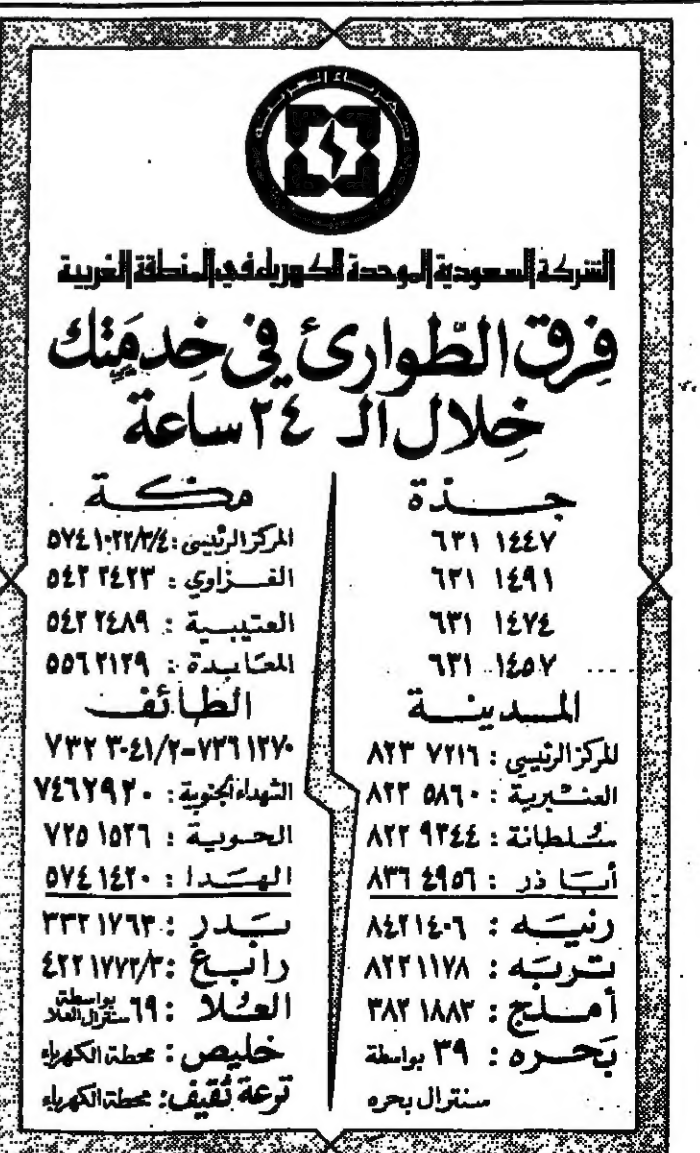 الشركة السعودية الموحدة للكهرباء في المنطقة الغربية
فِرق الطّوارئ في خِدمَتِك
خِلال الـ ٢٤ ساعة
جـــدّة
٦٣١ ١٤٤٧
٦٣١ ١٤٩١
٦٣١ ١٤٧٤
٦٣١ ١٤٥٧
المـدينـــة
المركز الرئيسي : ٨٢٣ ٧٢١٦
العنـبرية : ٨٢٢ ٥٨٦٠
سُـلطانة : ٨٢٢ ٩٣٤٤
أبـا ذر : ٨٣٦ ٤٩٥٦
رنيـــه : ٨٤٢١٤٠٦
تـربـه : ٨٢٢١١٧٨
أمـلـج : ٣٨٢ ١٨٨٣
بَحـره : ٣٩ بواسطة
سنترال بحره
مكــــة
المركز الرئيسي : ٥٧٤١٠٢٢/٣/٤
الفـــزاوي : ٥٤٢ ٢٤٢٣
العتيبيـة : ٥٤٢ ٢٤٨٩
المعـابـدة : ٥٥٦٢١٢٩
الطـائـف
٧٣٦١٢٧٠-٧٣٢ ٣٠٤١/٢
الشهداء الجنوبية : ٧٤٦٢٩٢٠
الحـويـة : ٧٢٥ ١٥٢٦
الهــدا : ٥٧٤١٤٢٠
بــدر : ٣٣٢١٧٦٣
رابــغ : ٤٢٢١٧٧٢/٣
العُــلا : ٦٩ بواسطة سنترال العلا
خليص : محطة الكهرباء
ترعة ثقيف : محطة الكهرباء